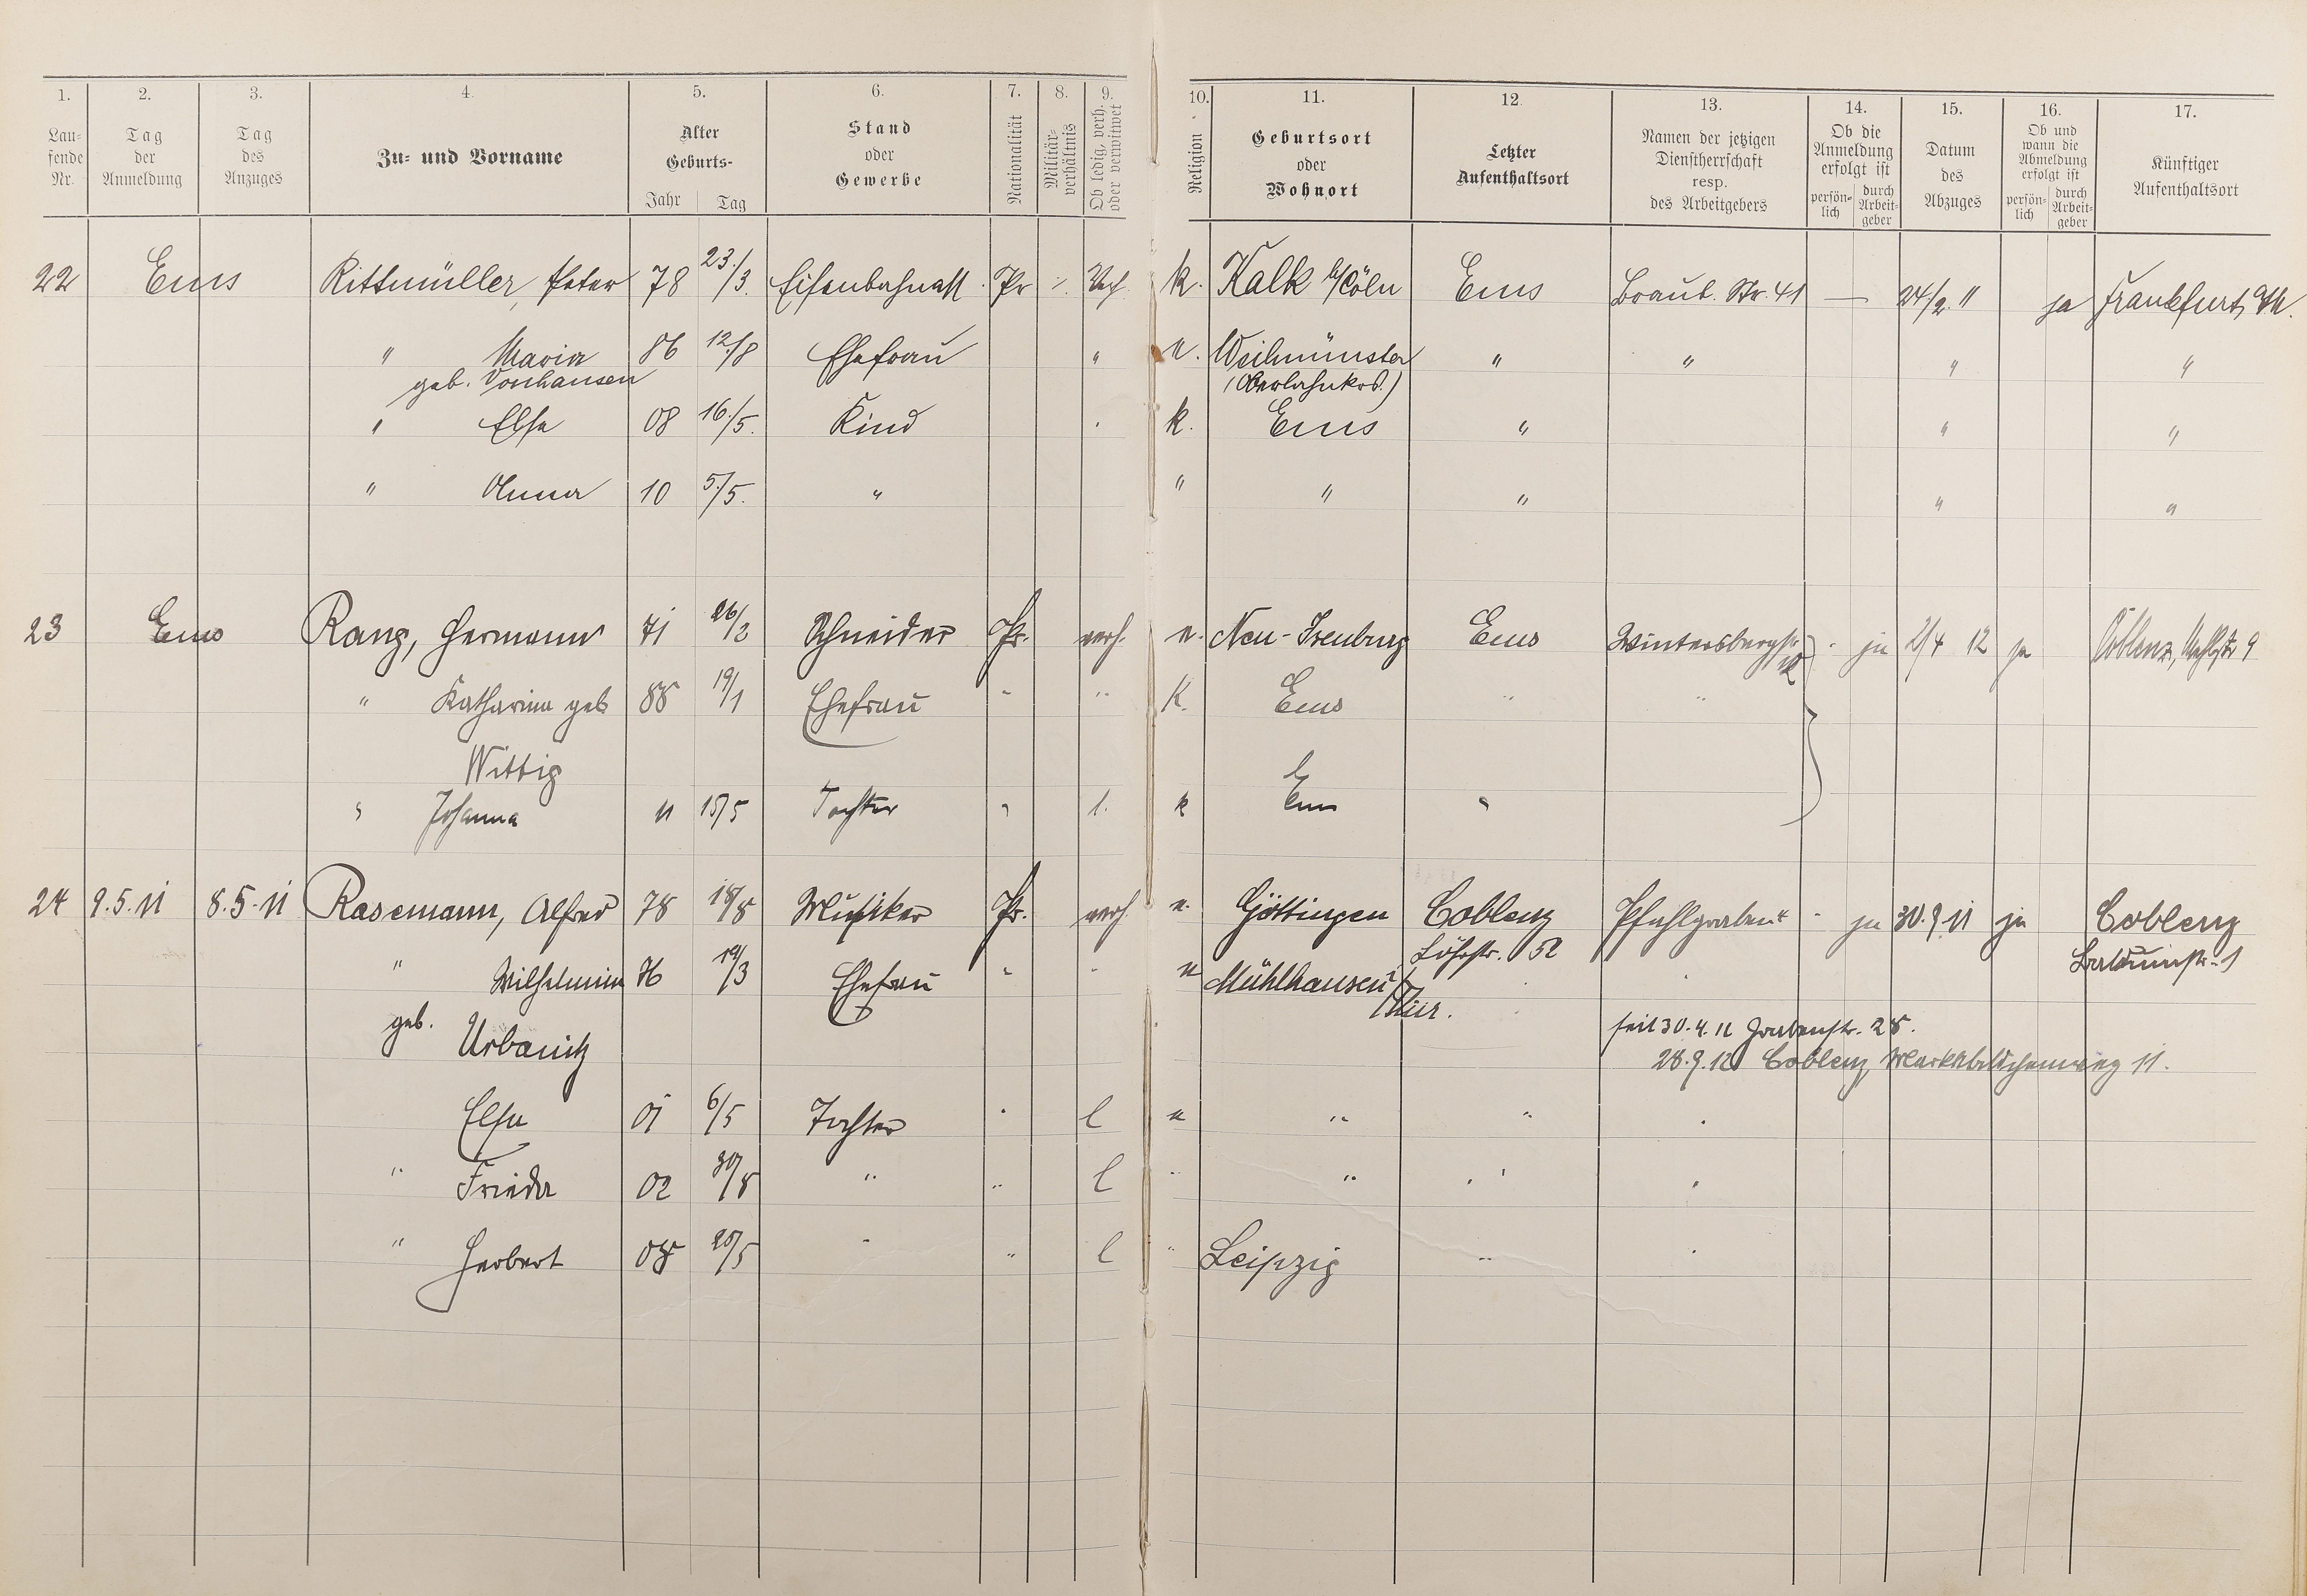 1. 2. 3. 4. 5. 6. 7. 8. 9. 10. 11. 12. 13. 14. 15. 16. 17.
Lau-
fende
Nr.
Tag
der
Anmeldung
Tag
des
Anzuges
Zu- und Vorname
Alter
Geburts-
Jahr Tag
Stand
oder
Gewerbe
Nationalität
Militär-
verhältnis
Ob ledig, verh.
oder verwitwet
Religion
Geburtsort
oder
Wohnort
Letzter
Aufenthaltsort
Namen der jetzigen
Dienstherrschaft
resp.
des Arbeitgebers
Ob die
Anmeldung
erfolgt ist
persön-
lich
durch
Arbeit-
geber
Datum
des
Abzuges
Ob und
wann die
Abmeldung
erfolgt ist
persön-
lich
durch
Arbeit-
geber
Künftiger
Aufenthaltsort
22 Ems Rittmüller, Peter 78 23./3. Pr Verh. k. Kalk b/Cöln Ems Braub. Str. 41 — 24/2. 11 ja Frankfurt
" Maria 86 12./8 Ehefrau " e. Weilmünster " " " "
geb. Vonhausen (Oberlahnkrs.)
" Else 08 16./5. Kind k. Ems " " "
" Anna 10 5./5. " " " " " "
23 Ems Rang, Hermann 71 26/2 Schneider Pr. verh. e. Neu-Isenburg Ems Wintersbergstr. - ja 2/4 12 ja Coblenz, 9
" Katharina geb 88 19/1 Ehefrau " " K. Ems " "
Wittig
" Johanna 11 15/5 Tochter " l. k Ems "
24 9.5.11 8.5.11 Rasemann, Alfred 78 18/8 Musiker Pr. verh. e. Göttingen Coblenz Pfahlgraben - ja 30.9.11 ja Coblenz
Löhrstr. 52
" Wilhelmine 76 19/3 Ehefrau " " e Mühlhausen i/
Tür.
geb.
Urbanitz
seit 30.4.12 Grabenstr. 28.
28.9.12 Coblenz Markenbildchenweg 11.
Else 01 6/5 Tochter " l e " "
" Frieda 02 30/8 " " l " " "
" Herbert 08 20/5 " " l " Leipzig "